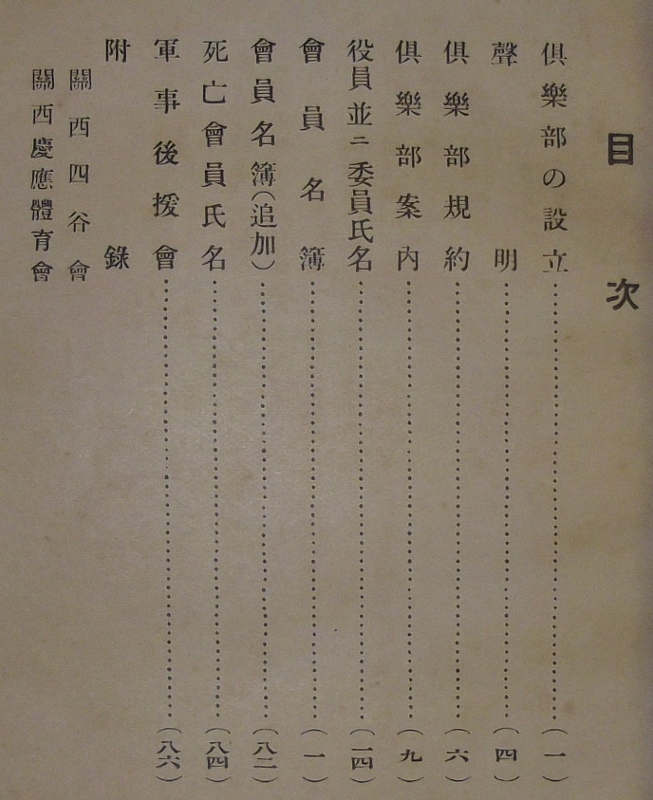 目次
俱樂部の設立……(一)
聲明……(四)
俱樂部規約……(六)
俱樂部案內……(九)
役員並ニ委員氏名……(一四)
會員名簿……(一)
會員名簿(追加)……(八二)
死亡會員氏名……(八四)
軍事後援會……(八六)
附錄
關西四谷會
關西慶應體育會